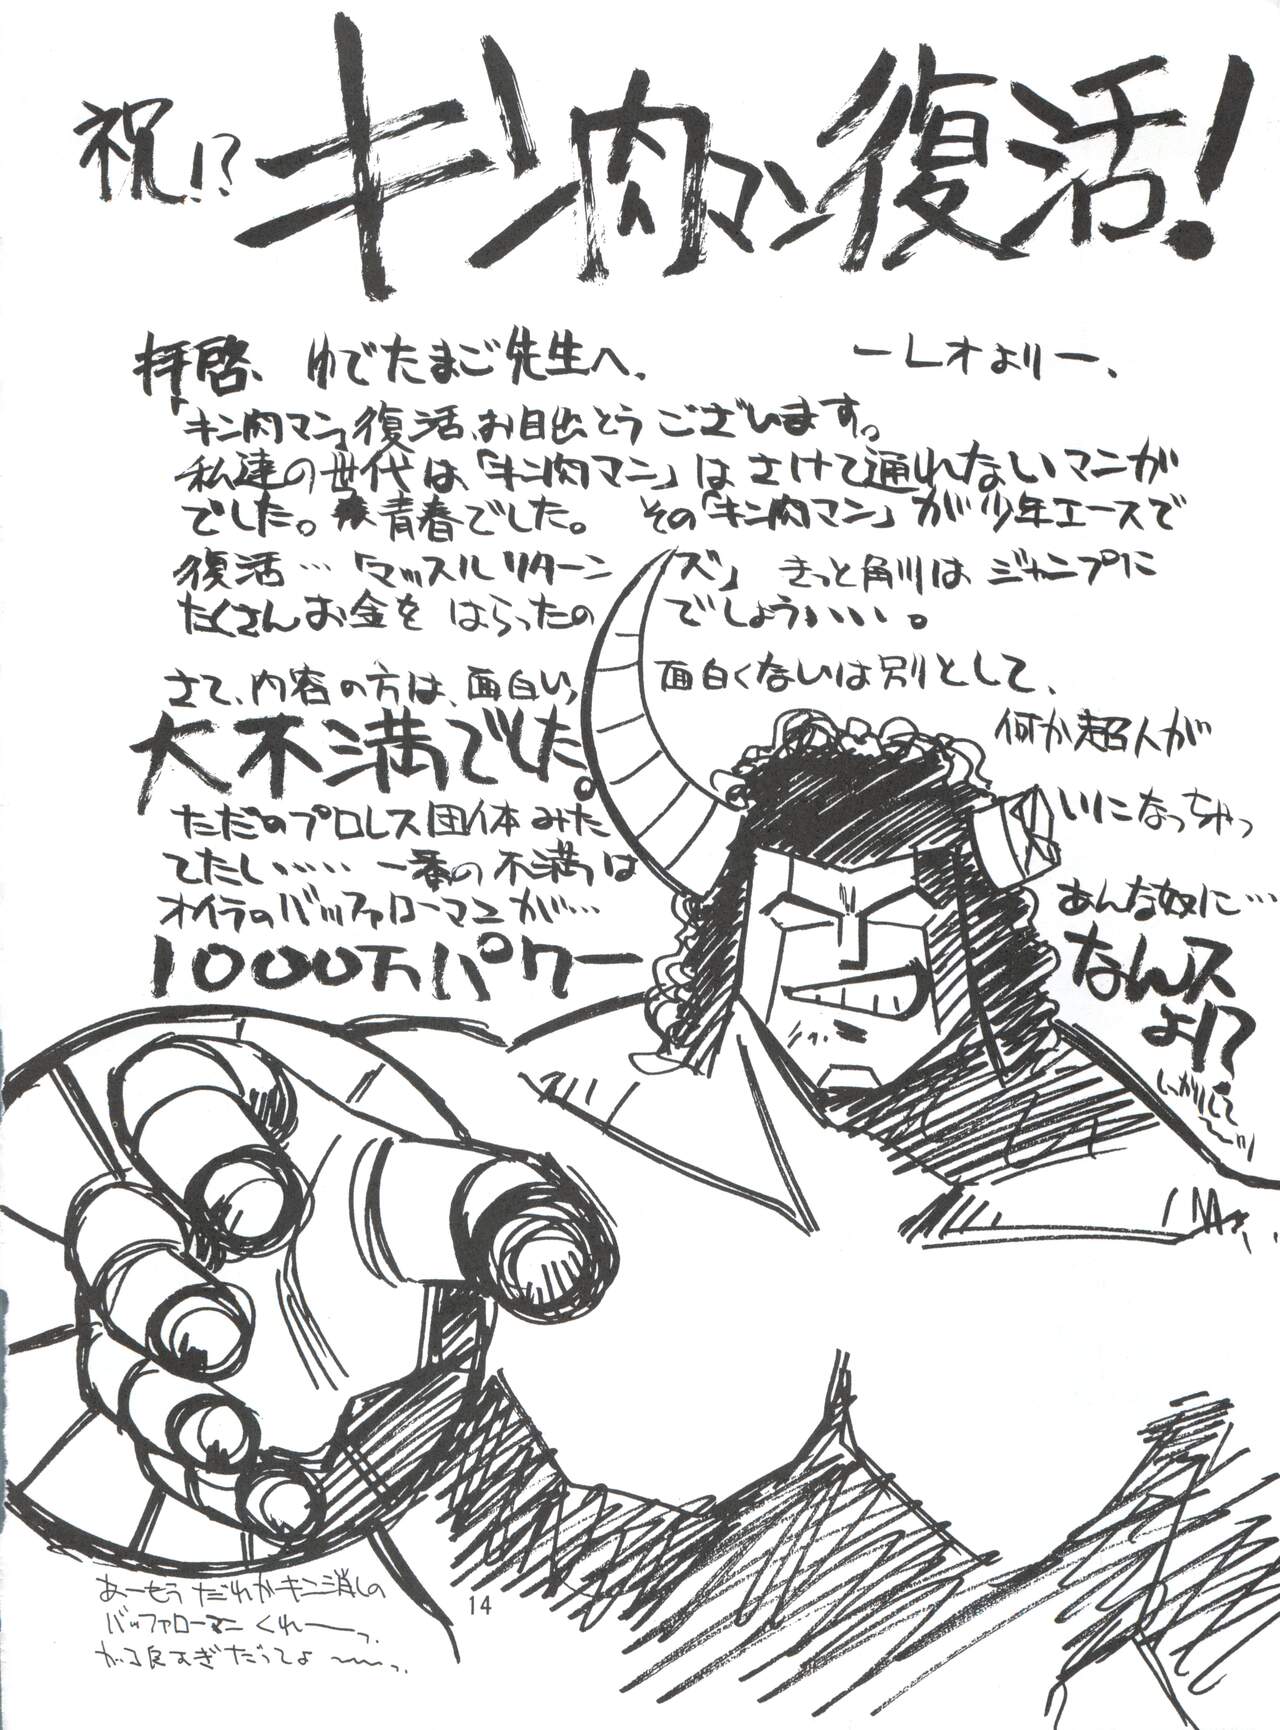 祝!?
キン肉マン復活!
拝啓、ゆでたまご先生へ、
ーレオよりー、
「キン肉マン」復活、お目出とうございます。
私達の世代は、「キン肉マン」はさけて通れないマンガ
でした。青春でした。その「キン肉マン」が少年エースで
復活…「マッスルリターンズ」きっと角川はジャンプに
たくさんお金をはらったのでしょう……。
さて、内容の方は、面白い、面白くないは別として、
大不満でした。何か超人が
ただのプロレス団体みたいになっちゃっ
てたし……一番の不満は
オイラのバッファローマンが…あんな奴に…
1000万パワーなんスよ!?
しっかりして〜ッ
あーもうだれかキン消しの
バッファローマンくれーっ、
がる良すぎだってよ〜っ、
14